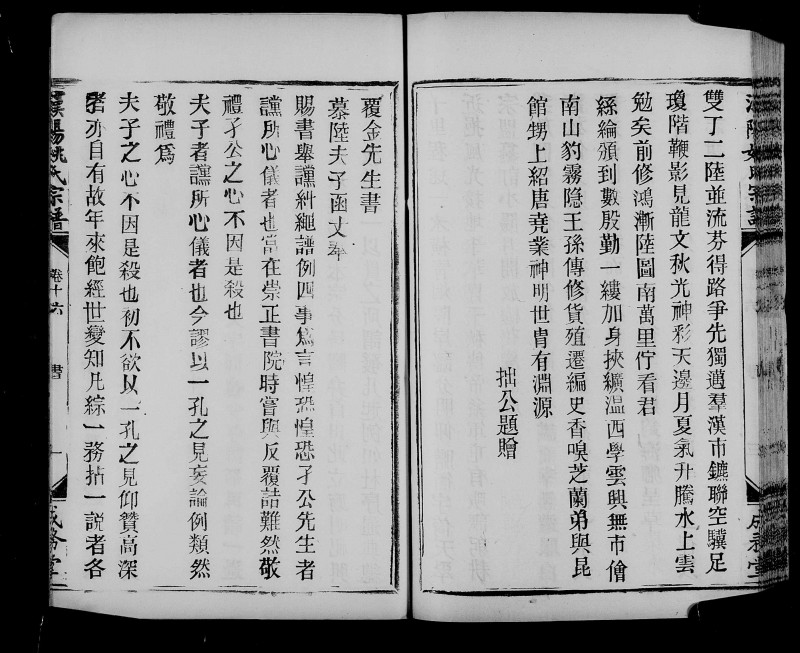 雙丁二陸並流芬得路爭先獨邁羣漢市鑣聯空驥足
瓊階鞭影見龍文秋光神彩天邊月夏氣升騰水上雲
勉矣前修鴻漸陸圖南萬里佇看君
絲綸頒到數殷勤一縷加身挾纊溫西學雲與無市僧
南山豹霧隱王孫傳修貨殖遷編史香嗅芝蘭弟與昆
館甥上紹唐堯業神明世胄有淵源
拙公題贈
覆金先生書
慕陸夫子函丈奉
賜書舉讜糾繩譜例四事為言惶恐惶恐孑公先生者
讜所心儀者也當在崇正書院時嘗與反覆詰難然敬
禮孑公之心不因是殺也
夫子者讜所心儀者也今謬以一孔之見妄論例類然
敬禮為
夫子之心不因是殺也初不欲以一孔之見仰贊高深
者亦自有故年來飽經世變知凡綜一務拈一說者各
漢陽姚氏宗譜
卷十六
書
一
成務堂